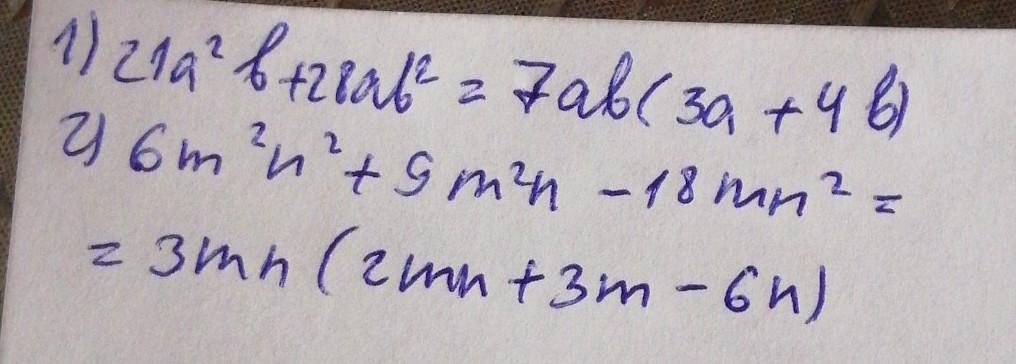 1) 21a²b+28ab² = 7ab(3a + 4b)
2) 6m²n² + 9m²n - 18mn² =
= 3mn (2mn + 3m - 6n)